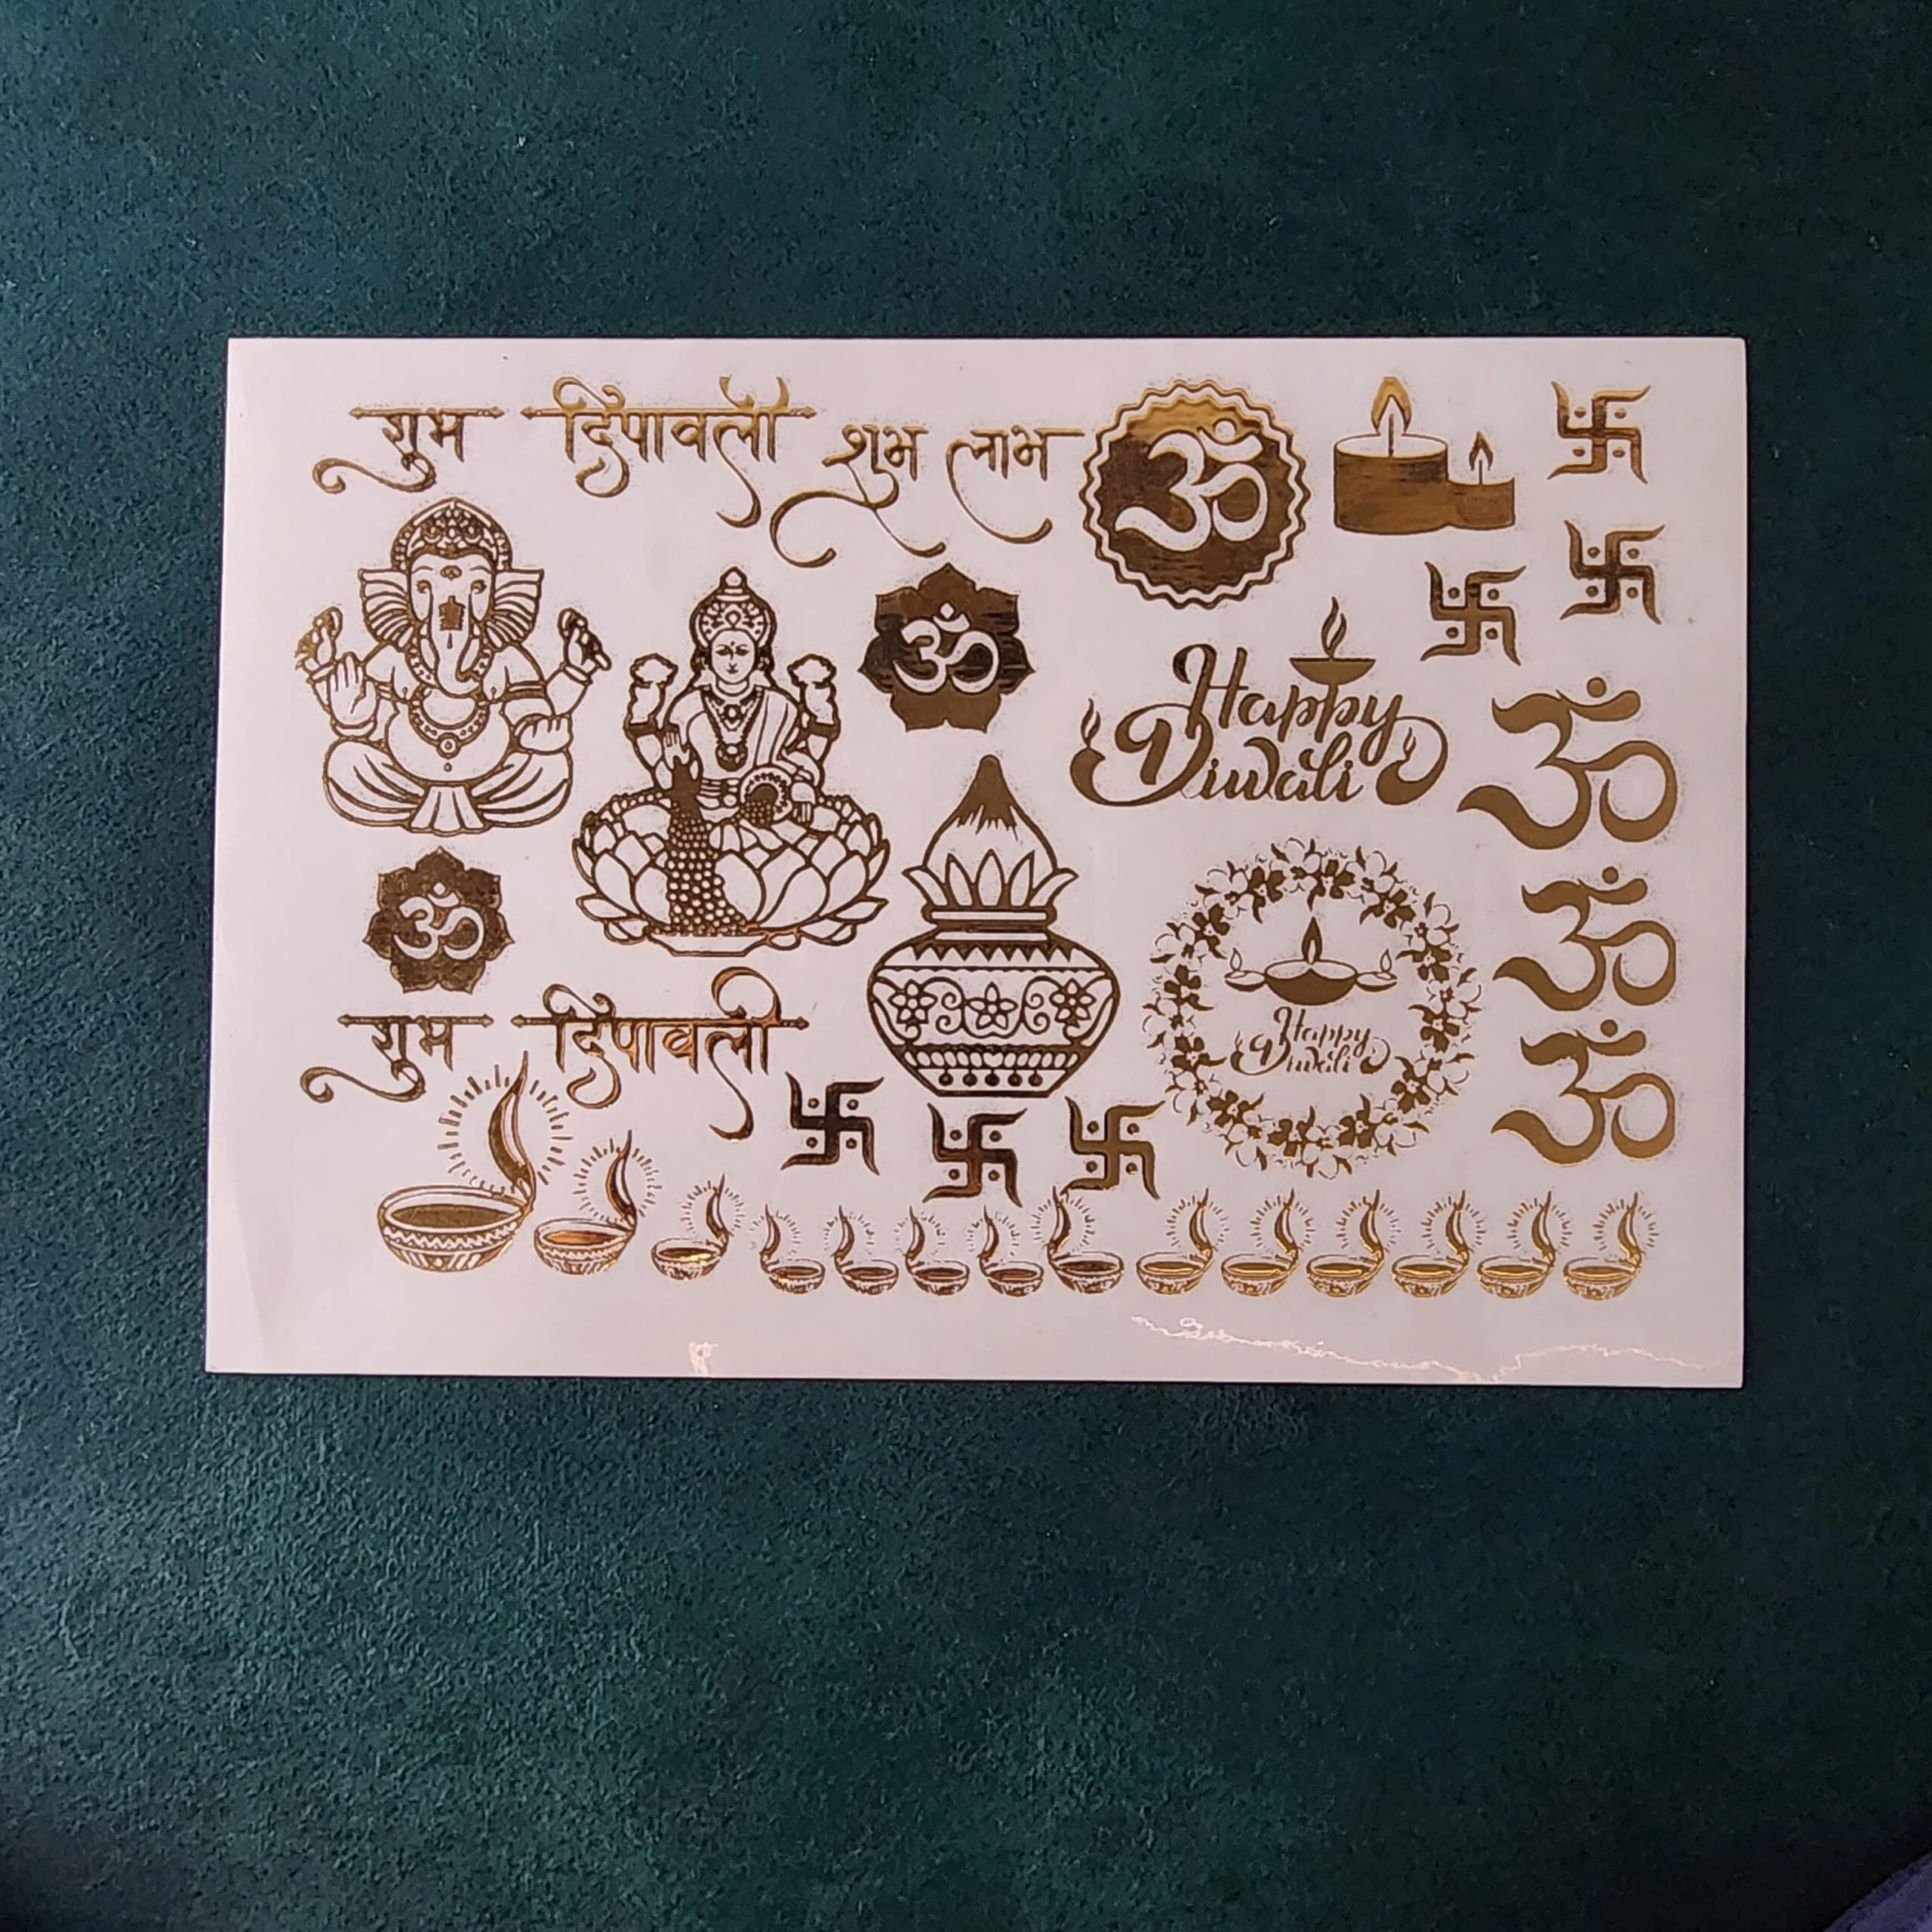 शुभ दिपावली
शुभ लाभ
ॐ
ॐ
Happy
Diwali
ॐ
ॐ
ॐ
Happy
Diwali
शुभ दिपावली
ॐ
ॐ